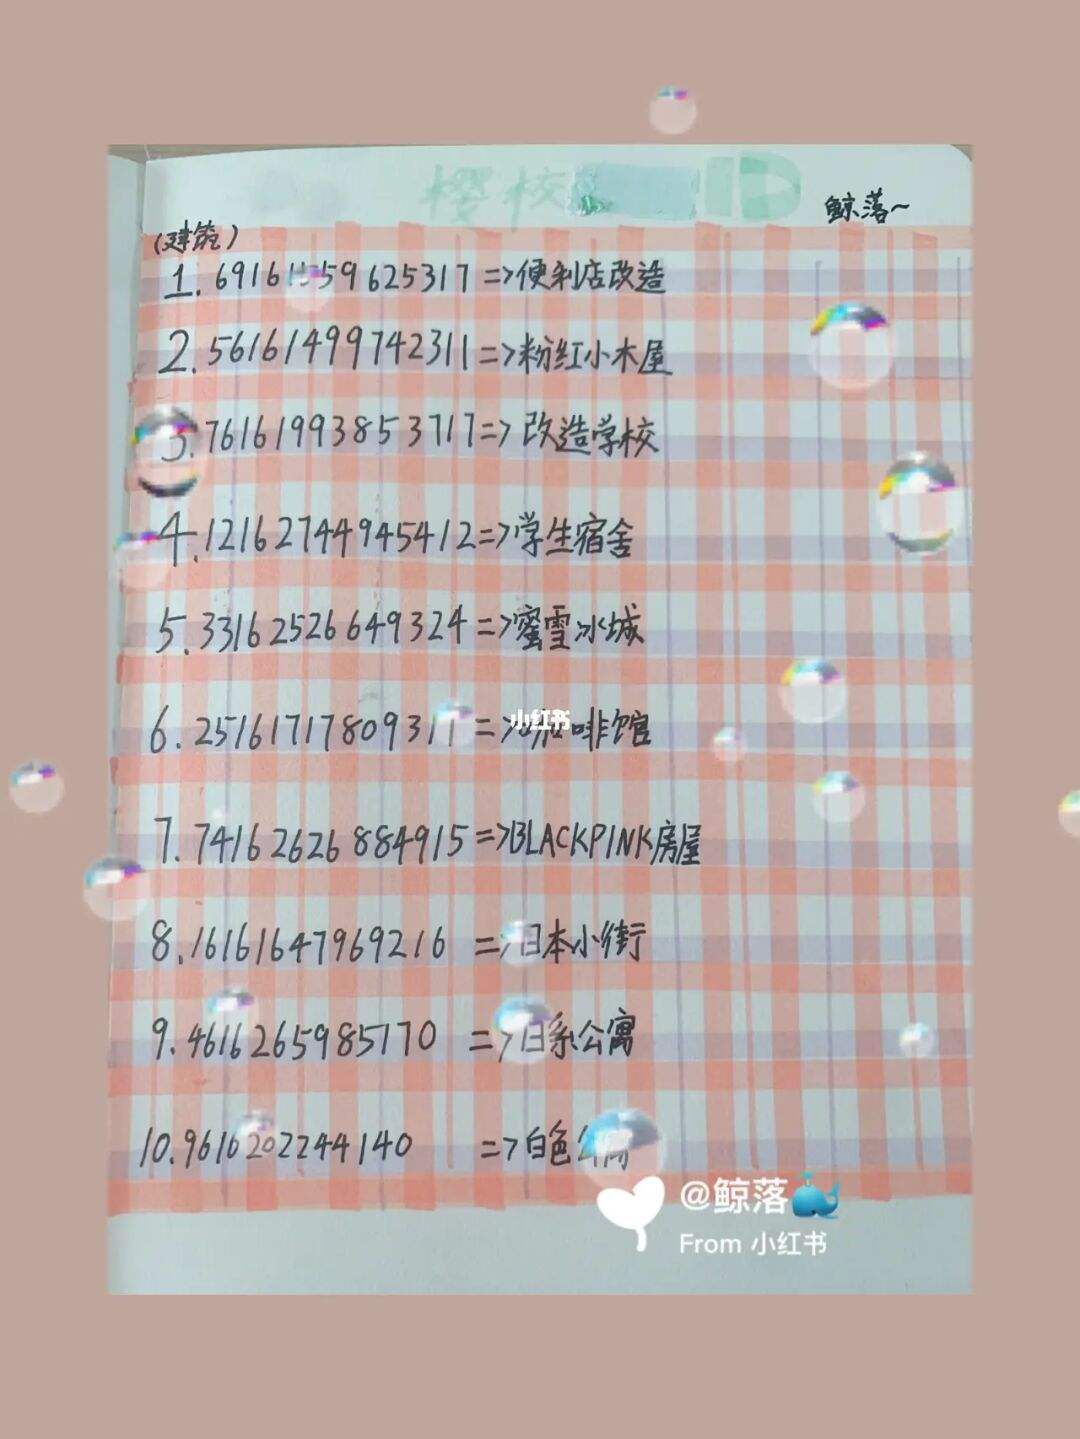 樱校 ID
鲸落~
(建筑)
1.6916 59625317=>便利店改造
2.56161499742311=>粉红小木屋
3.76161993853717=>改造学校
4.12162744945412=>学生宿舍
5.33162526649324=>蜜雪冰城
6.2516171780931 =>咖啡馆
7.74162626884915=>BLACKPINK房屋
8.16161647969216 =>日本小街
9.4616265985170 =>日系公寓
10.9616202244140 =>白色公寓
小红书
@鲸落🐳
From 小红书